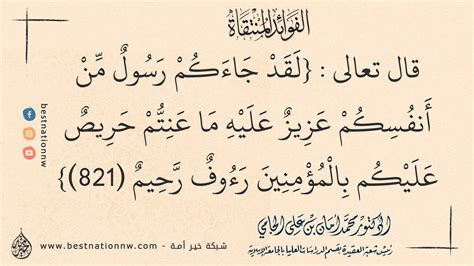 الفوائد المنتقاة
قال تعالى : {لَقَدْ جَاءَكُمْ رَسُولٌ مِّنْ
أَنفُسِكُمْ عَزِيزٌ عَلَيْهِ مَا عَنِتُّمْ حَرِيصٌ
عَلَيْكُم بِالْمُؤْمِنِينَ رَءُوفٌ رَّحِيمٌ (821)}
الدكتور محمد أمان بن علي الجامي
رئيس شعبة العقيدة بقسم الدراسات العليا بالجامعة الإسلامية
bestnationnw
شبكة خير أمة - www.bestnationnw.com